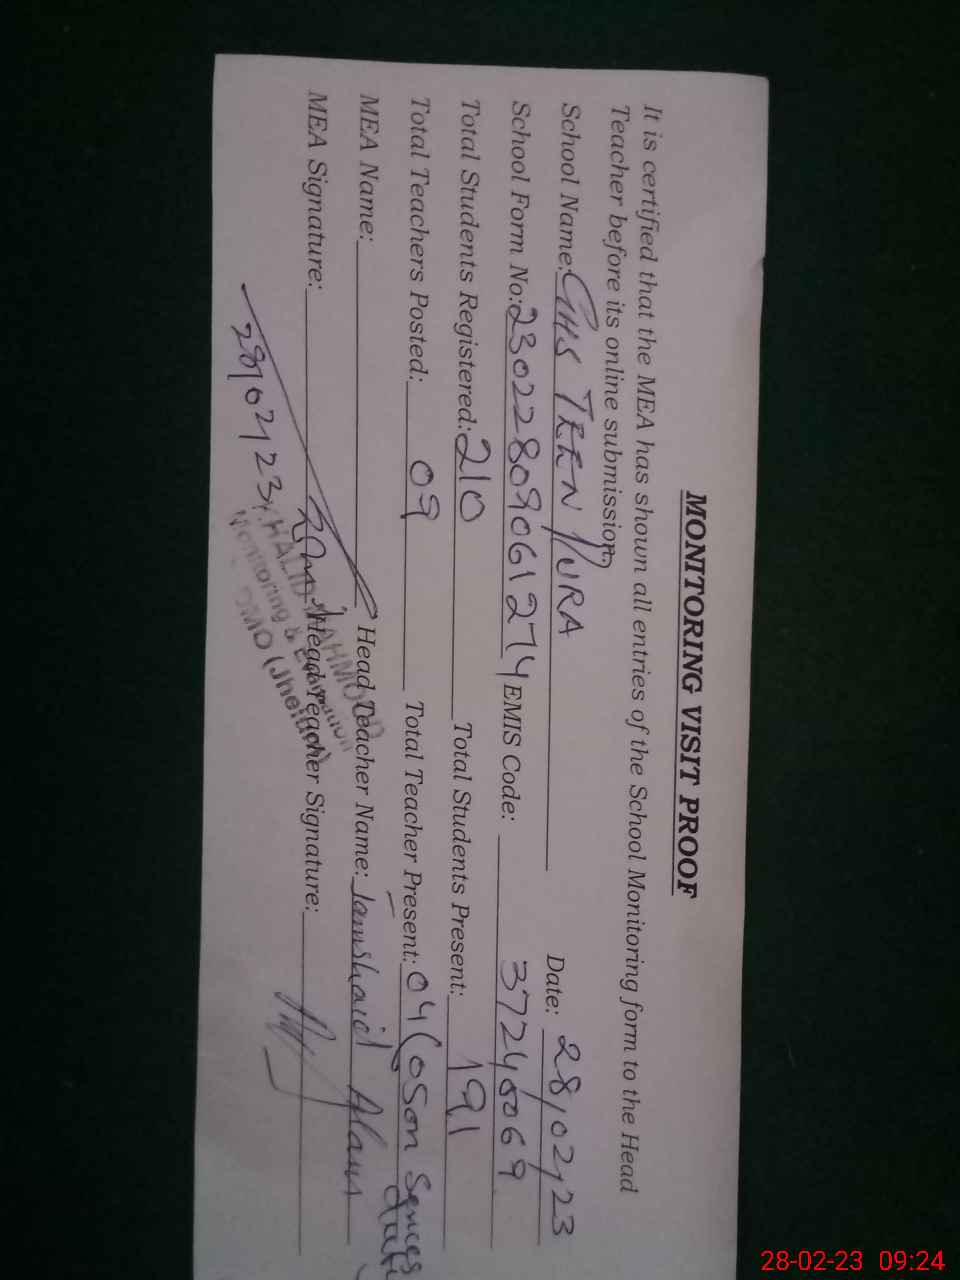 MONITORING VISIT PROOF
It is certified that the MEA has shown all entries of the School Monitoring form to the Head
Teacher before its online submission
School Name: GHS TEEN PURA Date: 28/02/23
School Form No: 230228090612 74 EMIS Code: 37240069
Total Students Registered: 210 Total Students Present: 191
Total Teachers Posted: 09 Total Teacher Present: 04 (05 on
MEA Name: Head Teacher Name: Jamshaid Alam
MEA Signature: Head Teacher Signature:
28/02/23
KHALID MAHMOOD
Monitoring & Evaluation
28-02-23 09:24